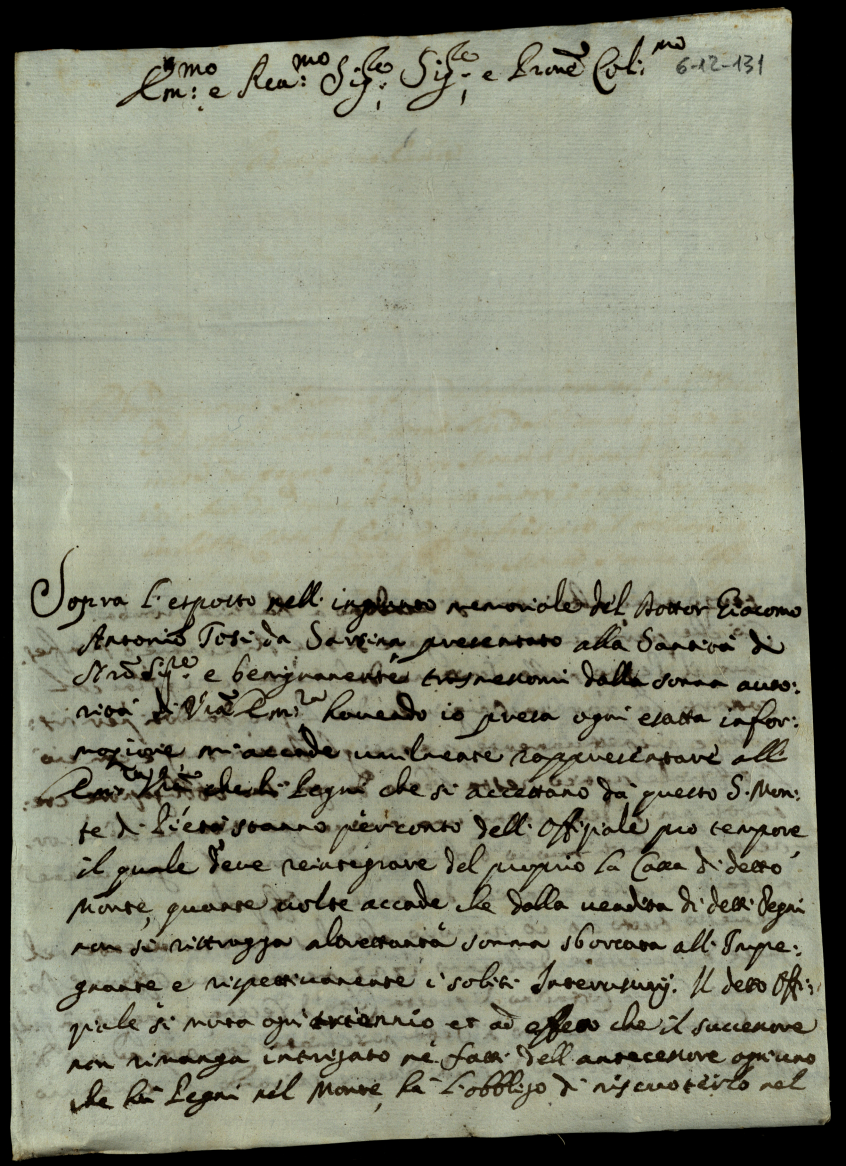 Em:mo e Rev:mo Sig:re Sig:re e Pron̄e Col:mo 6-12-131
Sopra l'esposto nell' ingiunto memoriale del Dottor Giacomo
Antonio Tosi da Sarsina presentato alla Santità di
Nr̄o Sig:re e benignamente trasmessomi dalla somma auto:
rità di Vr̄a Em:za havendo io presa ogni esatta infor:
mazione m'accade umilmente rappresentare all'
Em:za che li Pegni che si accettano da questo S. Mon:
te di Pietà stanno per conto dell' Offiziale pro tempore
il quale deve reintegrare del proprio la Cassa di detto
Monte, quante volte accade che dalla vendita di detti Pegni
non si ritragga altrettanta somma sborsata all' Impe:
gnante e rispettivamente i soliti Interusurij. Il detto Offi:
ziale si muta ogni triennio et ad effetto che il successore
non rimanga intrigato ne' fatti dell' antecessore ogn'uno
che hà Pegni nel Monte, hà l'obbligo di riscuoterlo nel